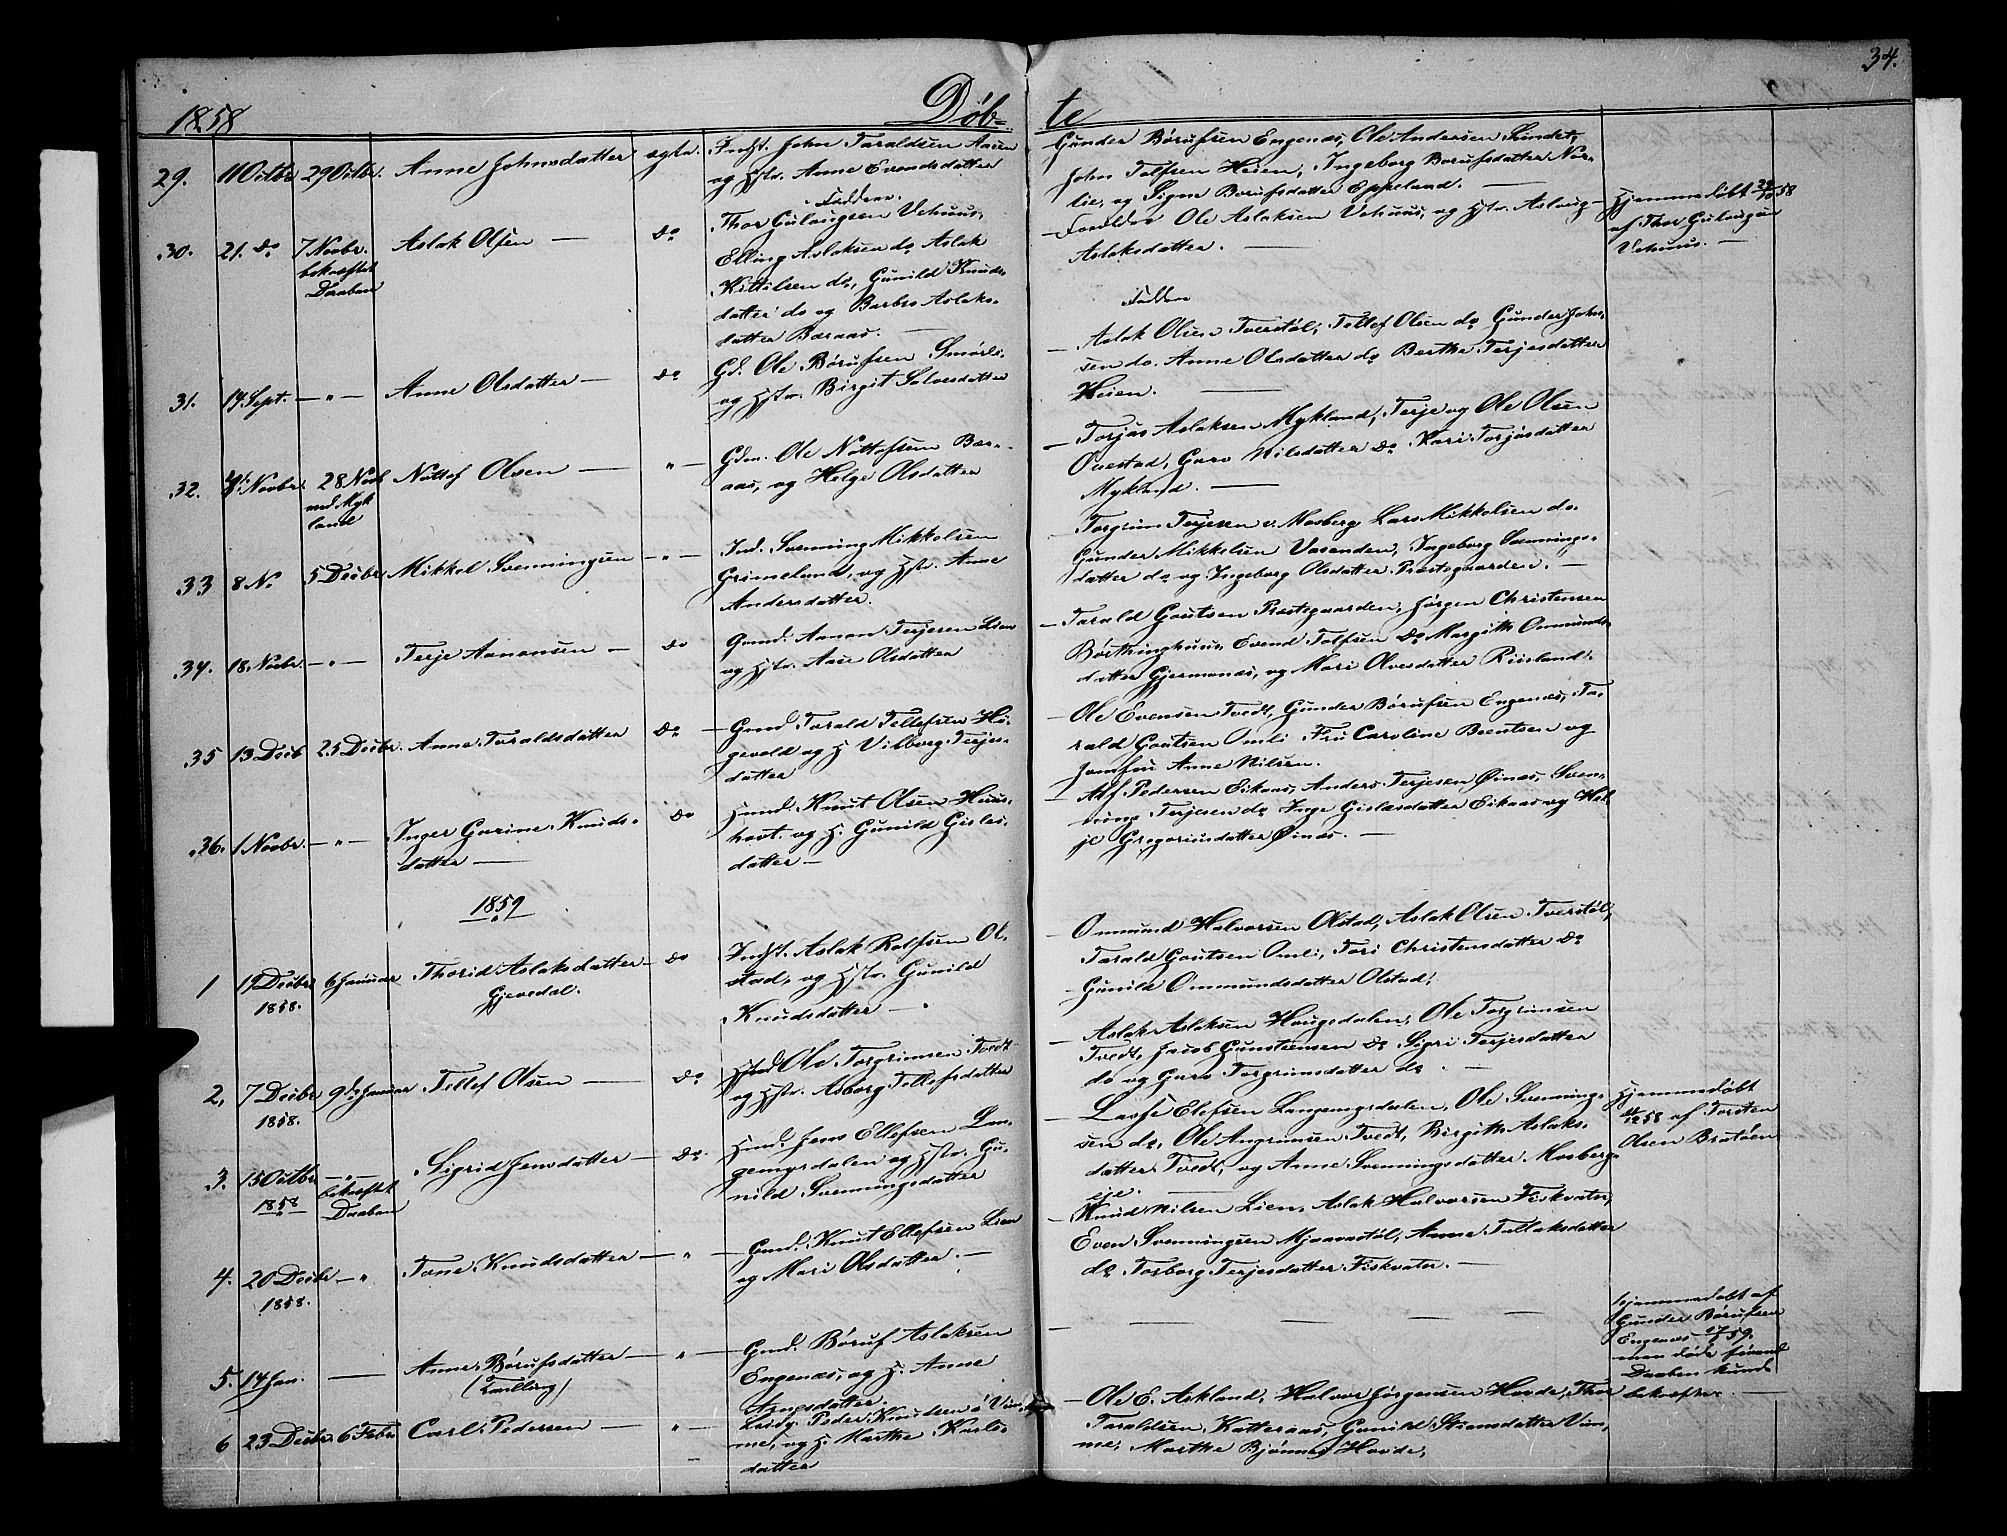 34.
1858 Døb- te
29. 11 Octbr 29 Octbr. Anne Johnsdatter ægte. Indst. John Taraldsen Aasen
og Hstr. Anne Evendsdatter
Gunder Børufsen Engenæs, Ole Andersen Sundet,
John Tolfsen Heien, Ingeborg Borufsdatter Nor-
lie, og Signe Borufsdatter Eppeland. —
30. 21. do 7 Novbr. bekræftet Daaben Aslak Olsen — do
Faddere.
Thor Gulaugsen Vehuus,
Elling Aslaksen do, Aslak
Kittilsen do, Gunild Knuds-
datter do og Barbro Aslaks-
datter Baraas. —
Forældre Ole Aslaksen Vehuus, og Hstr. Aslaug
Aslaksdatter. —
Hjemmedøbt 58
af Thor Gulaugsen
Vehuus. —
31. 14 Sept. — " — Anne Olsdatter — do Gd. Ole Børufsen Smørli.
og Hstr. Birgit Salvesdatter
Faddere
— Aslak Olsen Tverstøl, Tellef Olsen do Gunder Johns-
sen do. Anne Olsdatter do Berthe Terjesdatter
Heien. —
32. Novbr. 28 Novb ved Myk land Nottof Olsen — " — Gdm. Ole Nottofsen Bær-
aas, og Helge Olsdatter
— Torjus Aslaksen Mykland, Terje og Ole Olsen
Ouestad, Guro Nilsdatter do Kari Torjusdatter
Mykland. —
33 8 N 5 Decbr Mikkel Svenningsen — " — Ind. Svenning Mikkelsen
Grimeland, og Hstr. Anne
Andersdatter.
— Torgrim Terjesen v. Mosberg, Lars Mikkelsen do.
Gunder Mikkelsen Vasenden, Ingeborg Svennings-
datter do og Ingeborg Olsdatter Præstegaarden. —
34. 18. Novbr. — " — Terje Aanonsen — do Gmd. Aanon Terjesen Lien
og Hstr. Aase Olsdatter
— Tarald Goutsen Præstegaarden, Jørgen Christensen
Børthinghuus, Evend Tolfsen do Margith Onmunds-
datter Gjermonæs, og Mari Olvesdatter Riisland.
35 13 Decb 25 Decbr. Anne Taraldsdatter do — Gmd Tarald Tellefsen Hø-
gevold og H Vilborg Terjes-
datter
— Ole Evensen Tvedt, Gunder Børufsen Engenæs, Ta-
rald Goutsen Omli Fru Caroline Berntsen og
Jomfru Anne Nilsen.
36. 1 Novbr. — " — Inger Gurine Knuds-
datter — do Hmd. Knut Olsen Huus-
hovt. og H. Gunild Gisles-
datter —
— Alf Pedersen Eikaas, Anders Terjesen Øinæs, Sven-
ning Terjesen do Inge Gislesdatter Eikaas og Hel-
je Gregoriusdatter Øinæs. —
1859
1 17 Decbr 1858. 6 Januar Thorid Aslaksdatter —
Gjevedal. do Indst. Aslak Rolfsen Ol-
stad, og Hstr. Gunild
Knudsdatter —
— Onmund Halvorsen Olstad, Aslak Olsen Tverstøl,
Tarald Goutsen Omli, Tori Christensdatter do
Gunild Onmundsdatter Olstad.
2, 7 Decbr 1858. 9de Januar Tellef Olsen — do Hmd Ole Torgrimsen Tvedt
og Hstr. Asborg Tellefsdatter
— Aslak Aslaksen Haugsdalen, Ole Torgrimsen
Tvedt, Jacob Gunsteensen do Sigri Terjesdatter
do og Guro Torgrimsdatter do. —
3. 15 Octbr 1858 — " — bekræftet Daaben Sigrid Jensdatter — do. Hmd. Jens Ellefsen Lan-
gemyrdalen og Hstr. Gu-
nild Svenningsdatter
— Lasse Elefsen Langemyrdalen, Ole Svennings-
sen do, Ole Angrimsen Tvedt, Birgith Aslaks-
datter Tvedt, og Anne Svenningsdatter Mosberg-
eje. —
Hjemmedøbt
58 af Torsten
Olsen Bratøen
4. 20 Decbr 1858. — " Tone Knudsdatter — " — Gmd. Knut Ellefsen Lien
og Mari Olsdatter. —
— Knud Nilsen Lien, Aslak Halvorsen Fiskvatn,
Even Svenningsen Mjaavastøl, Anne Tellaksdatter
do Torborg Terjesdatter Fiskvatn. —
5. 14 Jan. — Anne Børufsdatter —
(Tvilling) " — Gmd. Børuf Aslaksen
Engenæs, og H. Anne
Aanesdatter.
— — — — — —
Hjemmedøbt af
Gunder Børufsen
Engenæs 59.
men døde førend
Daaben kunde
bekræftes. —
6 23 Decbr. 6 Febr Carl Pedersen — " — Peder Knudsen a Vim-
me, og H. Marthe Karls-
datter
— Ole E. Askland, Halvor Jørgensen Hovde, Thor
Taraldsen Katteraas, Gunild Steensdatter Vim-
me, Marthe Bjønnes Hovde,